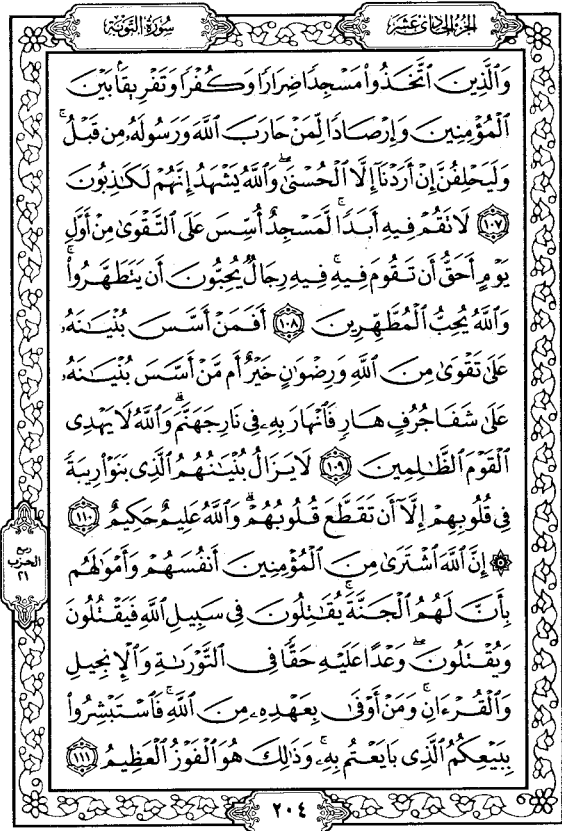 سُورَةُ التَّوْبَةِ
الجُزْءُ الحَادِي عَشَرَ
وَالَّذِينَ اتَّخَذُوا مَسْجِدًا ضِرَارًا وَكُفْرًا وَتَفْرِيقًا بَيْنَ
الْمُؤْمِنِينَ وَإِرْصَادًا لِّمَنْ حَارَبَ اللَّهَ وَرَسُولَهُ مِن قَبْلُ ۚ
وَلَيَحْلِفُنَّ إِنْ أَرَدْنَا إِلَّا الْحُسْنَىٰ ۖ وَاللَّهُ يَشْهَدُ إِنَّهُمْ لَكَاذِبُونَ
﴿١٠٧﴾ لَا تَقُمْ فِيهِ أَبَدًا ۚ لَّمَسْجِدٌ أُسِّسَ عَلَى التَّقْوَىٰ مِنْ أَوَّلِ
يَوْمٍ أَحَقُّ أَن تَقُومَ فِيهِ ۚ فِيهِ رِجَالٌ يُحِبُّونَ أَن يَتَطَهَّرُوا ۚ
وَاللَّهُ يُحِبُّ الْمُطَّهِّرِينَ ﴿١٠٨﴾ أَفَمَنْ أَسَّسَ بُنْيَـٰنَهُ
عَلَىٰ تَقْوَىٰ مِنَ اللَّهِ وَرِضْوَانٍ خَيْرٌ أَم مَّنْ أَسَّسَ بُنْيَـٰنَهُ
عَلَىٰ شَفَا جُرُفٍ هَارٍ فَانْهَارَ بِهِ فِي نَارِ جَهَنَّمَ ۗ وَاللَّهُ لَا يَهْدِي
الْقَوْمَ الظَّـٰلِمِينَ ﴿١٠٩﴾ لَا يَزَالُ بُنْيَـٰنُهُمُ الَّذِي بَنَوْا رِيبَةً
فِي قُلُوبِهِمْ إِلَّا أَن تَقَطَّعَ قُلُوبُهُمْ ۗ وَاللَّهُ عَلِيمٌ حَكِيمٌ ﴿١١٠﴾
۞ إِنَّ اللَّهَ اشْتَرَىٰ مِنَ الْمُؤْمِنِينَ أَنفُسَهُمْ وَأَمْوَالَهُم
بِأَنَّ لَهُمُ الْجَنَّةَ ۚ يُقَـٰتِلُونَ فِي سَبِيلِ اللَّهِ فَيَقْتُلُونَ
وَيُقْتَلُونَ ۖ وَعْدًا عَلَيْهِ حَقًّا فِي التَّوْرَىٰةِ وَالْإِنجِيلِ
وَالْقُرْءَانِ ۚ وَمَنْ أَوْفَىٰ بِعَهْدِهِ مِنَ اللَّهِ ۚ فَاسْتَبْشِرُوا
بِبَيْعِكُمُ الَّذِي بَايَعْتُم بِهِ ۚ وَذَٰلِكَ هُوَ الْفَوْزُ الْعَظِيمُ ﴿١١١﴾
ربع
الحزب
٢١
٢٠٤